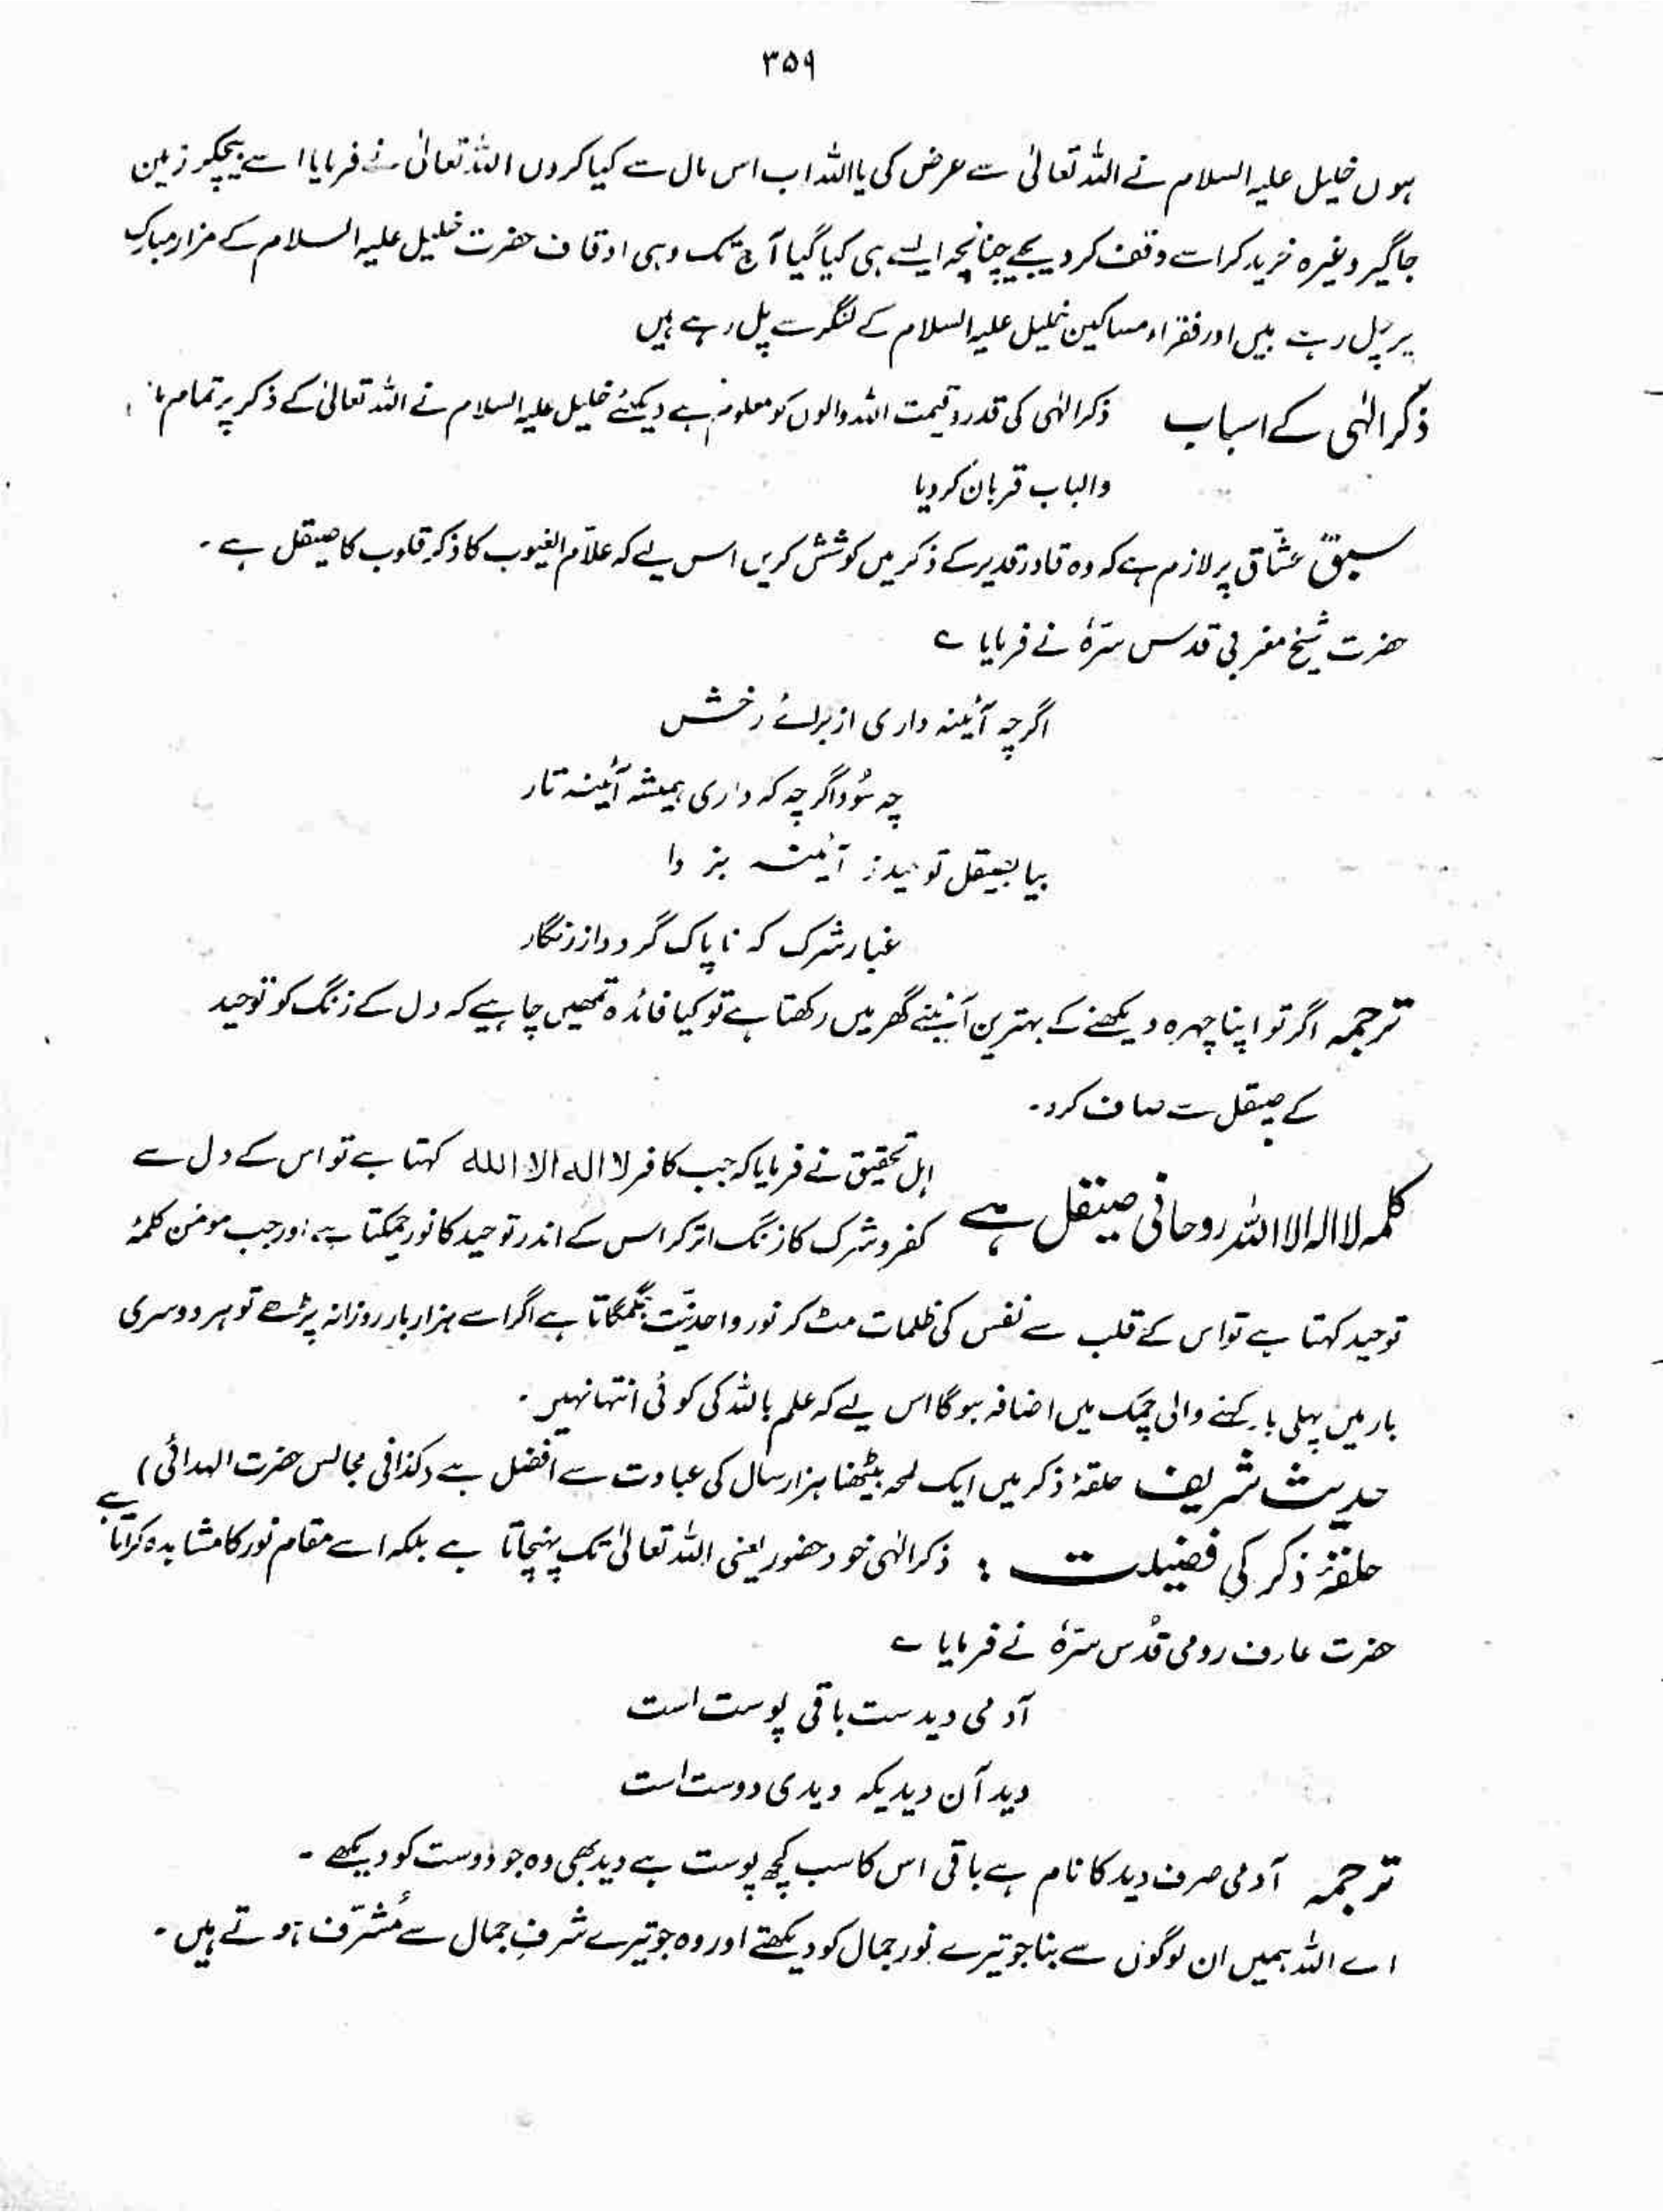 ۳۵۹
ہوں خلیل علیہ السلام نے اللہ تعالیٰ سے عرض کی یا اللہ اب اس مال سے کیا کروں اللہ تعالیٰ نے فرمایا اسے بیچکر زمین
جاگیر وغیرہ خرید کر اسے وقف کر دیجیے چنانچہ ایسے ہی کیا گیا آج تک وہی اوقاف حضرت خلیل علیہ السلام کے مزار مبارک
پر چل رہے ہیں اور فقراء مساکین خلیل علیہ السلام کے لنگر سے پل رہے ہیں
ذکر الٰہی کے اسباب ذکر الٰہی کی قدر و قیمت اللہ والوں کو معلوم ہے دیکھئے خلیل علیہ السلام نے اللہ تعالیٰ کے ذکر پر تمام
والباب قربان کر دیا
سبق عشّاق پر لازم ہے کہ وہ قادر قدیر کے ذکر میں کوشش کریں اس لیے کہ علّام الغیوب کا ذکر قلوب کا صیقل ہے۔
حضرت شیخ مغربی قدس سرّہٗ نے فرمایا ے
اگرچہ آئینہ داری از برائے رخش
چہ سُود اگرچہ کہ داری ہمیشہ آئینہ تار
بیا بصیقل توحید ز آئینہ بز دا
غبار شرک کہ نا پاک گردد از زنگار
ترجمہ اگر تو اپنا چہرہ دیکھنے کے بہترین آئینے گھر میں رکھتا ہے تو کیا فائدہ تمھیں چاہیے کہ دل کے زنگ کو توحید
کے صیقل سے صاف کرو۔
کلمہ لا الہ الا اللہ روحانی صیقل ہے اہل تحقیق نے فرمایا کہ جب کافر لا الہ الا اللہ کہتا ہے تو اس کے دل سے
کفر و شرک کا زنگ اتر کر اس کے اندر توحید کا نور چمکتا ہے اور جب مومن کلمۂ
توحید کہتا ہے تو اس کے قلب سے نفس کی ظلمات مٹ کر نور واحدنیّت جگمگاتا ہے اگر اسے ہزار بار روزانہ پڑھے تو ہر دوسری
بار میں پہلی بار کہنے والی چمک میں اضافہ ہوگا اس لیے کہ علم باللہ کی کوئی انتہا نہیں۔
حدیث شریف حلقۂ ذکر میں ایک لمحہ بیٹھنا ہزار سال کی عبادت سے افضل ہے (کذافی مجالس حضرت الہدائی)
حلقۂ ذکر کی فضیلت : ذکر الٰہی خود حضور یعنی اللہ تعالیٰ تک پہنچاتا ہے بلکہ اسے مقام نور کا مشاہدہ کراتا ہے
حضرت عارف رومی قُدس سرّہٗ نے فرمایا ے
آدمی دیدست باقی پوست است
دید آن دیدیکہ دیدی دوست است
ترجمہ آدمی صرف دید کا نام ہے باقی اس کا سب کچھ پوست ہے دید بھی وہ جو دوست کو دیکھے۔
اے اللہ ہمیں ان لوگوں سے بنا جو تیرے نور جمال کو دیکھتے اور وہ جو تیرے شرفِ جمال سے مُشرّف ہوتے ہیں۔